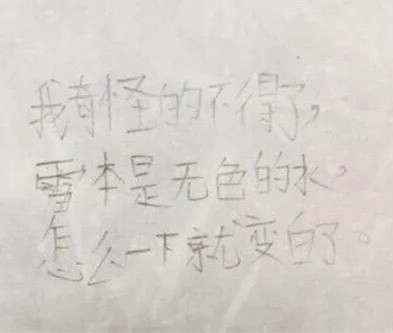 我奇怪的不得了，
雪本是无色的水，
怎么一下就变白了。